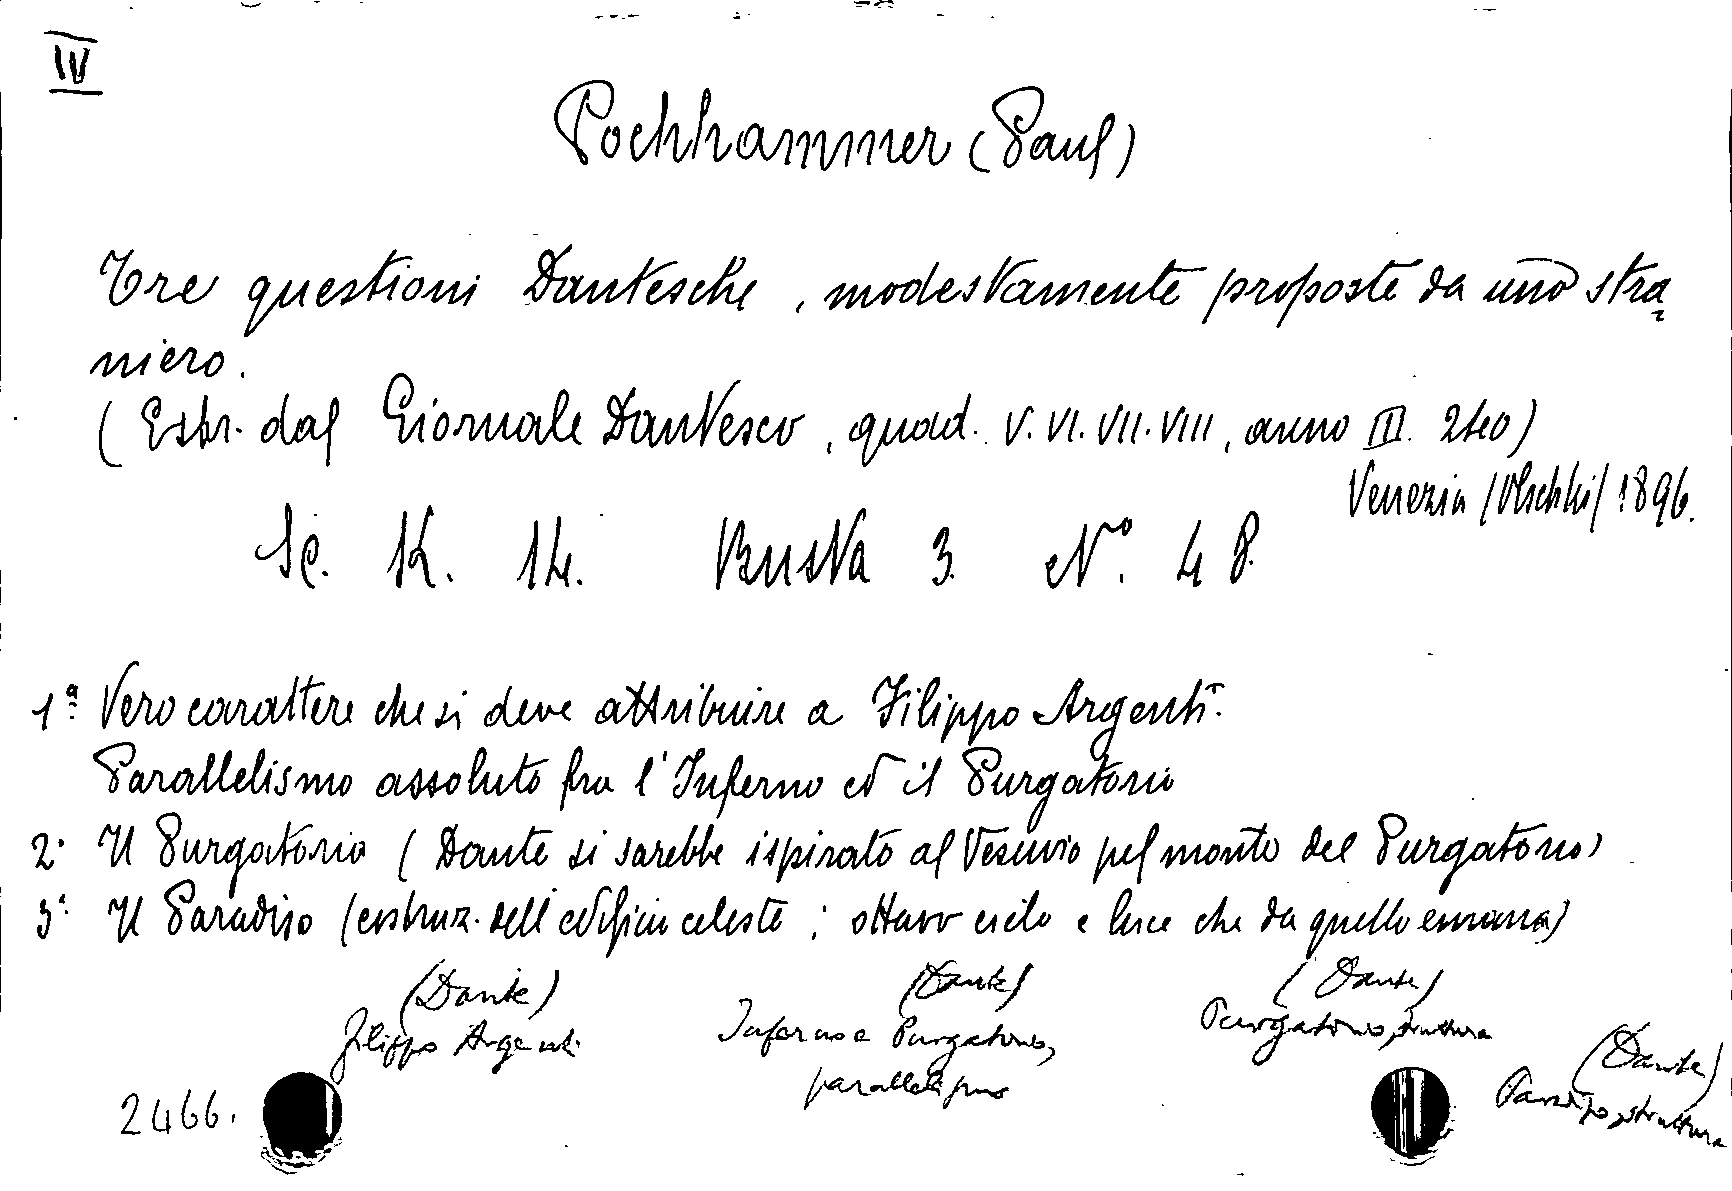 IV
Pochhammer (Paul)
Tre questioni Dantesche, modestamente proposte da uno stra
niero.
(Estr. dal Giornale Dantesco, quad. V. VI. VII. VIII, anno III. 240)
Venezia (Olschki) 1896.
Sc. K. 14. Busta 3. N°. 48.
1ª Vero carattere che si deve attribuire a Filippo Argenti.
Parallelismo assoluto fra l'Inferno ed il Purgatorio
2ª Il Purgatorio (Dante si sarebbe ispirato al Vesuvio pel monte del Purgatorio)
3ª Il Paradiso (costruz. dell'edificio celeste; ottavo cielo e luce che da quello emana)
(Dante) (Dante) (Dante)
Filippo Argenti Inferno e Purgatorio, Purgatorio, struttura
parallelismo
(Dante)
Paradiso, struttura
2466.